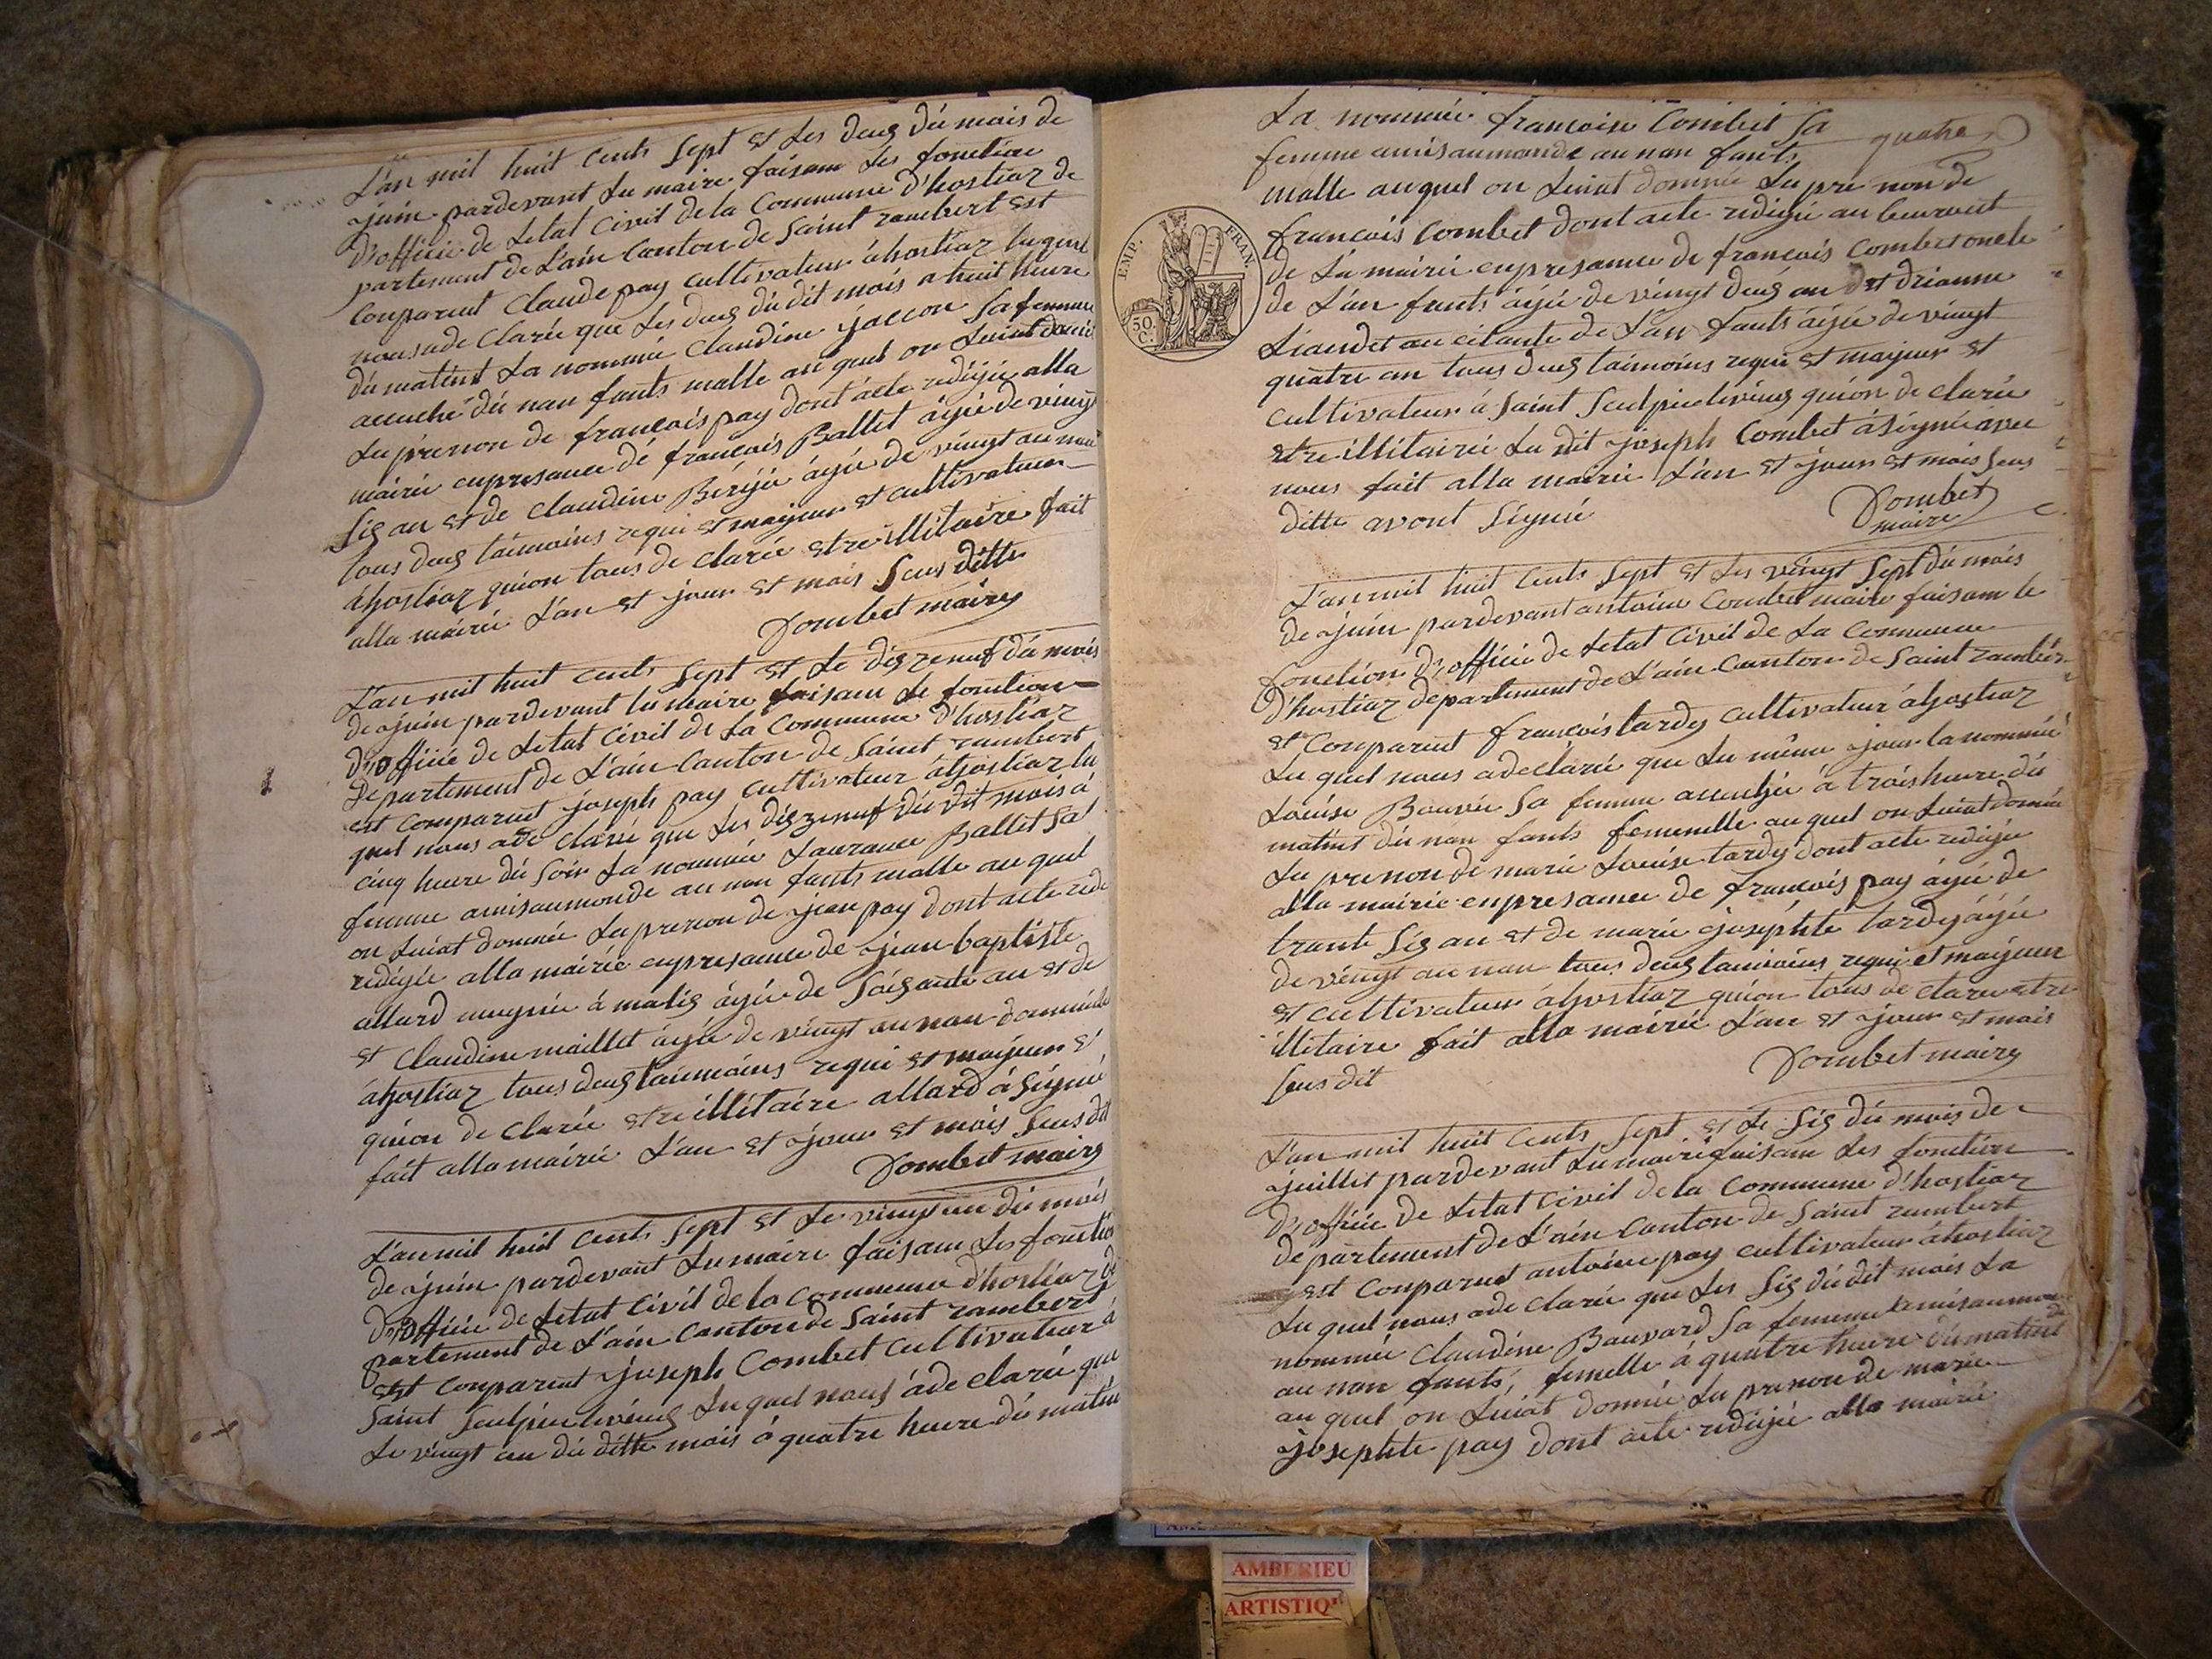 L'an mil huit cents sept et les deus du mois de
juin pardevant lu maire faisam les fonction
d'officié de letat Civil de la Commune d'hostiaz de
partement de l'ain Canton de Saint rambert est
Conparut Claude pay cultivateur à hostiaz luquel
nous a de Clarée que les deus du dit mois a huit heure
du matint La nommée Claudine jaccon Sa femme
accuché du nan fants malle au quel on luiat donné
Lu prénon de françois pay dont acte redigée alla
mairie enpresance de françois Ballet âgée de vingt
Sis an et de Claudine Beréjée âgée de vingt au nan
tous deus taimoins requi et majeur et cultivateur
à hostiaz quion tous de clarée etre illitaire fait
alla mairie L'an et jour et mois Seus ditte
Combet maire
L'an mil huit cents Sept et Le dis zenuf du mois
de juin pardevant lu maire faisam le fonction
d'officié de Letat Civil de La Commune d'hostiaz
departement de L'ain Canton de Saint rambert
est Comparut joseph pay Cultivateur à hostiaz lu
quel nous ade Clarée que Les dis zenuf du dit mois à
cinq heure du Soir La nommée Laurance Ballet Sa
femme amisaumonde au nan fants malle au quel
on Luiat donnée Lu prenon de jean pay dont acte rede
redigée alla mairie enpresance de jean baptiste
allard mugnée à malis âgée de Soisante an et de
et Claudine maillet âgée de vingt au nan
à hostiaz tous deus taimoins requi et majeur
quion de Clarée etre illitaire allard à Signé
fait alla mairie L'an et jour et mois Seus dit
Combet maire
L'an mil huit cents Sept et Le vingt un du mois
de juin pardevant Lu maire faisam Les fonction
d'officié de Letat Civil de la Commune d'hostiaz de
partement de L'ain Canton de Saint rambert
est Conparut joseph Combet Cultivateur à
Saint Seulpice livieus Luquel nous àde clarée que
Le vingt un du ditte mois à quatre heure du matin
La nommée francoise Combet Sa quatre
femme amisaumonde au nan fants
malle auquel on Luiat donnée Lu pre non de
françois Combet dont acte redigée au beurouit
de La mairie enpresance de françois Combet oncle
de L'an fants âgée de vingt deus an et drianne
Liaudet au citante de L'an fants âgée de vingt
quatre an tous deus taimoins requi et majeur et
Cultivateur à Saint Seulpice livieus quion de clarée
etre illitairé Lu dit joseph Combet à Signée avec
nous fait alla mairie L'an et jour et mois Seus
ditte avont Signée
Combet
maire
L'an mil huit Cents Sept et Les vingt Sept du mois
de juin pardevant antoine Combet maire faisam le
fonction d'officié de Letat Civil de La Commune
d'hostiaz departement de L'ain Canton de Saint rambér
et Conparut françois tardy cultivateur à hostiaz
Lu quel nous adeclarée que Lu même jour la nommée
Louise Bauvée Sa femme accuchée à trois heure du
matint du nan fants femenelle au quel on Luiat donnée
Lu prenon de marie Louise tardy dont acte redigée
alla mairie enpresance de françois pay âgée de
trante Sis an et de marie josephte tardy âgée
de vingt au nan tous deus taimoins requi et majeur
et cultivateur à hostiaz quion tous de clarée etre
illitaire fait alla mairie L'an et jour et mois
Seus dit
Combet maire
L'an mil huit Cents Sept et Le Sis du mois de
juillet pardevant Lu maire faisam Les fonction
d'officié de Letat Civil de la Commune d'hostiaz
departement de L'ain Canton de Saint rambert
est Conparut antoine pay cultivateur à hostiaz
Lu quel nous ade clarée que Les Sis du dit mois La
nommée Claudine Bauvard Sa femme amisaumon
de
au nan fants femelle à quatre heure du matint
au quel on Luiat donnée Lu prenon de marie
josephte pay dont acte redigée alla mairie
EMP. FRAN.
50.
C.
AMBERIEU
ARTISTIQ